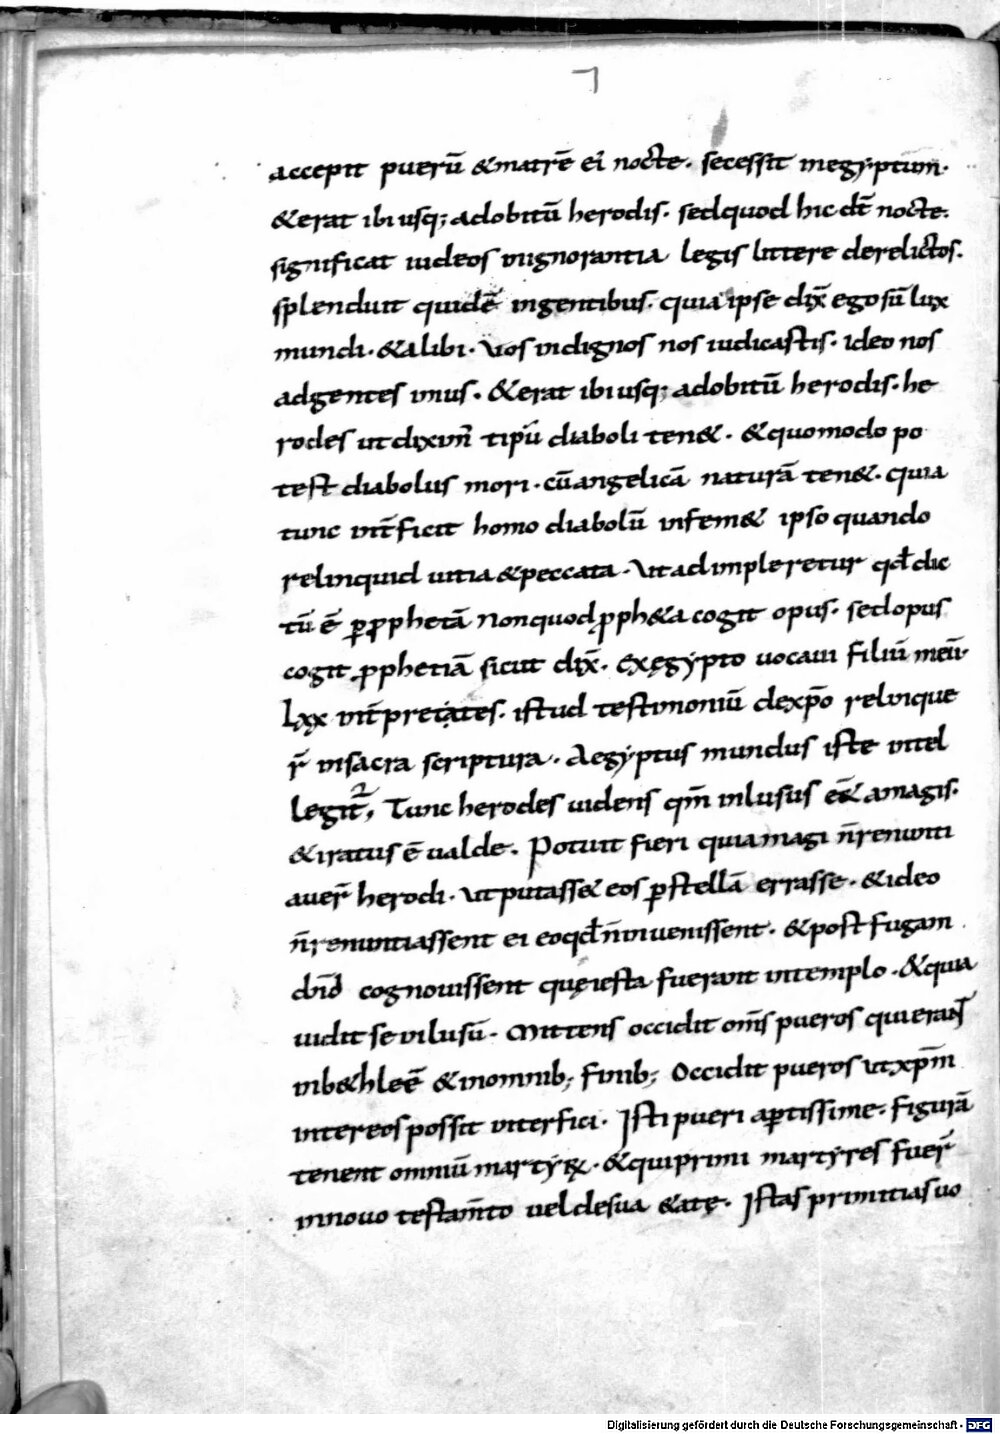 7
accepit puerū &matrē ei᾽ nocte. secessit inegyptum.
&erat ibi usq; adobitū herodis. sedquod hic dt̄ nocte.
significat iudeos inignorantia legis littere derelictos.
splenduit quidē ingentibus. quia ipse dix̄ ego sū lux
mundi. &alibi. Vos indignos nos iudicastis. ideo nos
adgentes imus. &erat ibi usq; adobitū herodis. he
rodes ut diximꝰ tipū diaboli ten&. &quomodo po
test diabolus mori. cū angelicā naturā ten&. quia
tunc int̄ficit homo diabolū insem& ipso quando
relinquid uitia &peccata. Vt adimpleretur qd̄ dic
tū ē ꝑ ꝓphetā Nonquod ꝓph&a cogit opus. sed opus
cogit ꝓphetiā sicut dix̄. exęgypto uocaui filiū meū.
Lxx int̄pretates. istud testimoniū dexp̄o relinque
r̄ insacra scriptura. Aegyptus mundus iste intel
legit᷑; Tunc herodes uidens qm̄ inlusus eēt amagis.
&iratus ē ualde. Potuit fieri quia magi n̄ renunti
auer̄ herodi. Vt putass& eos ꝑstellā errasse. &ideo
n̄ renuntiassent ei eoqd̄ n̄ inuenissent. &post fugam
dn̄i cognouissent quę iesta fuerant intemplo. &quia
uidit se inlusū. Mittens occidit om̄s pueros quierant
inb&hleē &inomnib; finib; Occidit pueros ut xp̄m
intereos possit interfici. Isti pueri aptissime. figurā
tenent omniū martyrꝝ. &quiprimi martyres fuer̄
innouo testam̄to uel desua &atę. Istas primitias uo
Digitalisierung gefördert durch die Deutsche Forschungsgemeinschaft - DFG